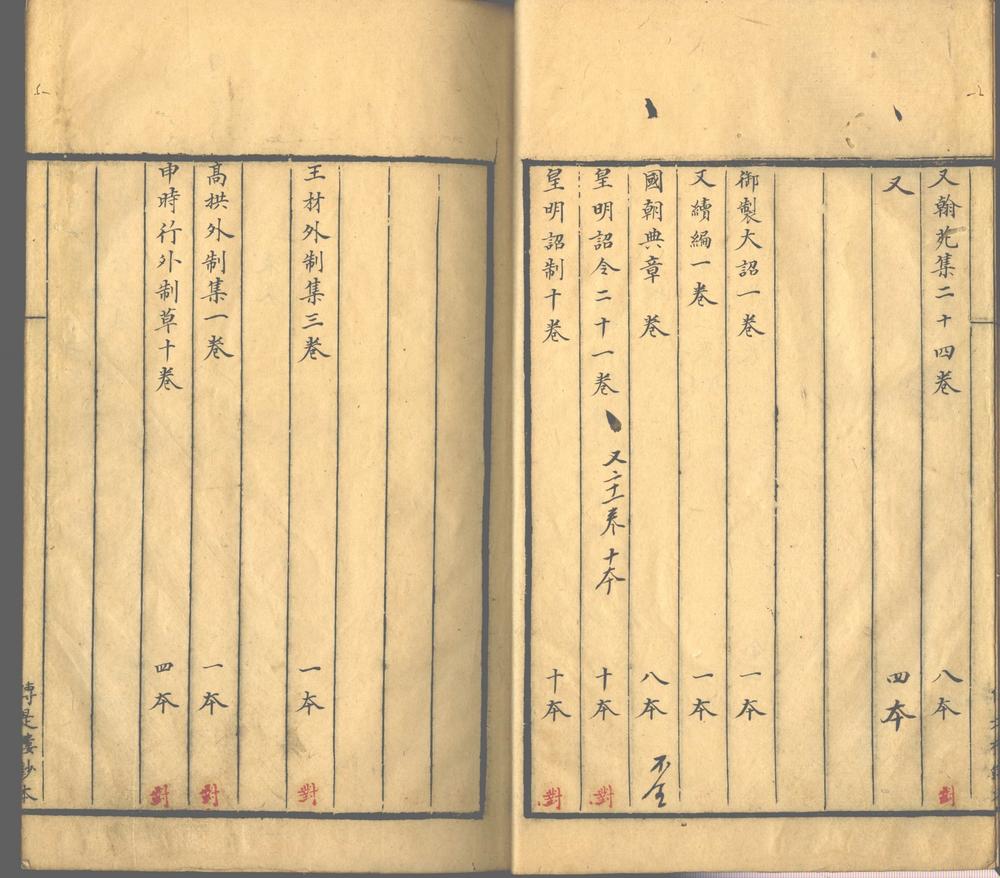 又翰苑集二十四卷 八本 對
又 四本
御製大詔一卷 一本
又續編一卷 一本
國朝典章 卷 八本 不全
皇明詔令二十一卷 又二十一卷 十本 十本 對
皇明詔制十卷 十本 對
王材外制集三卷 一本 對
高拱外制集一卷 一本 對
申時行外制草十卷 四本 對
傳是樓鈔本